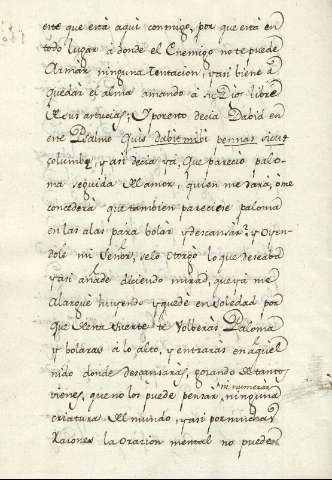 este que está aquí conmigo, por que está en
todo lugar a donde el Enemigo no te puede
Armar ninguna tentacion, y asi biene a
quedar el alma amando à su Dios libre
de sus astucias; Y por esto decia Dabid en
este Psalmo Quis dabit mihi pennas sicut
columbæ, y asi decia yà, Que parecio palo-
ma seguida del amor, quien me darà, ò me
concederà que tambien pareciese paloma
en las alas para bolar y descansàr? y Oyen-
dole mi Señor, se lo otorgò lo que deseaba
y asi añade diciendo mirad, que ya me
Alarguè huyendo y quedè en soledad por
que de esta suerte te Volberàs Paloma
y bolaràs à lo alto, y entraràs en aquel
nido donde descansaras, gozando de tantos
vienes, que no los puede pensar, ni numerar ninguna
criatura del mundo, y asi por muchas
Raciones la oracion mental no puede